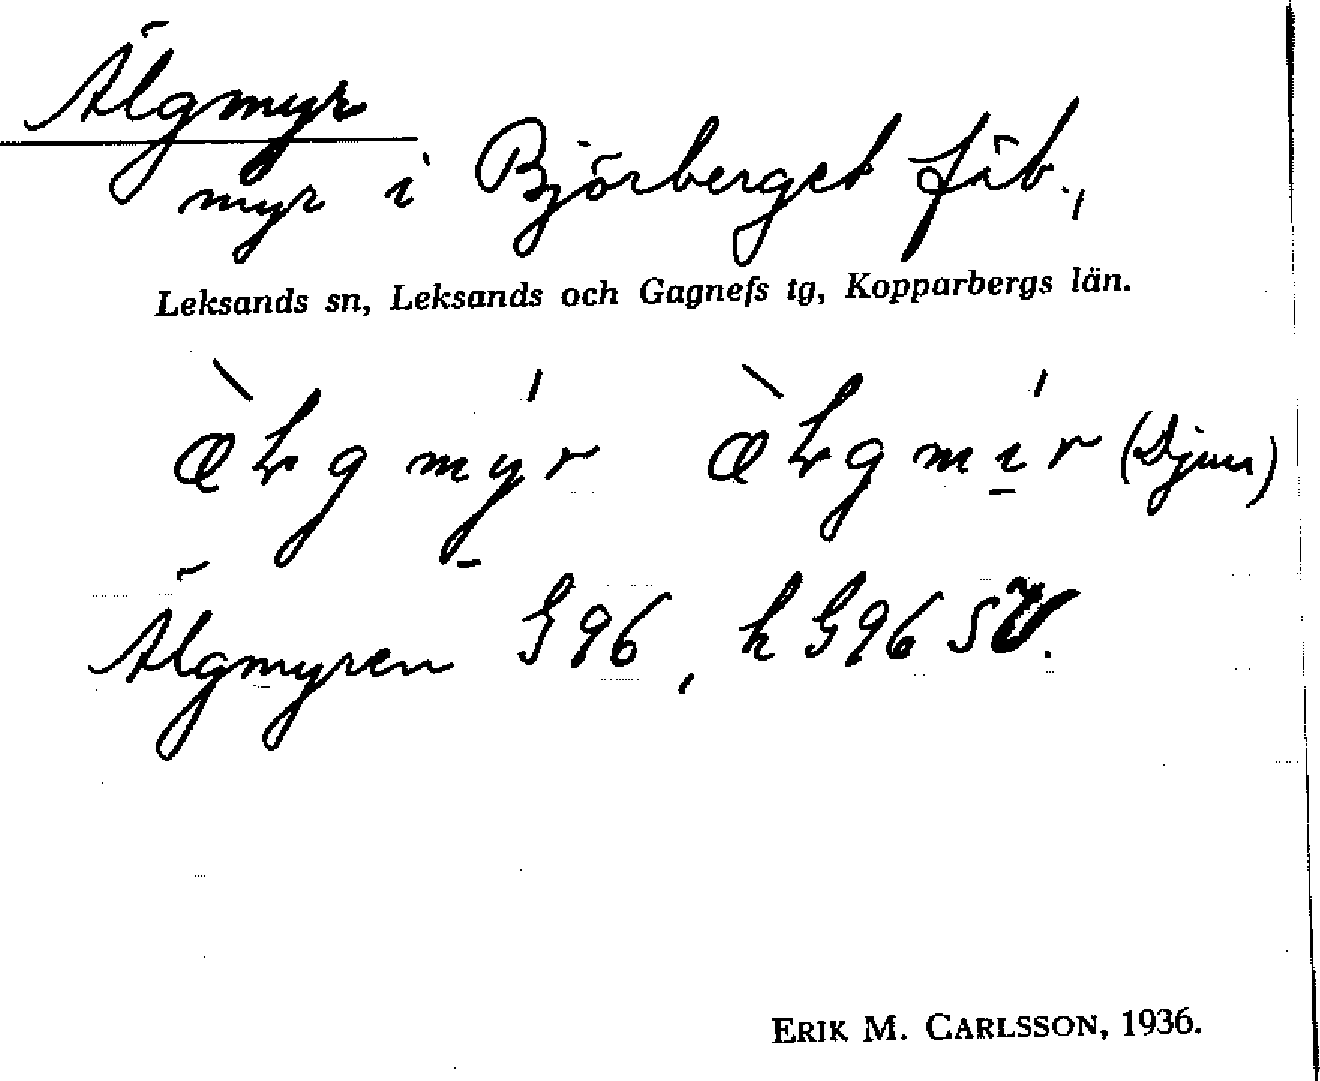 Älgmyr
myr i Björberget fäb.,
Leksands sn, Leksands och Gagnefs tg, Kopparbergs län.
æ̀lgmý̠r æ̀lgmí̠r (Djura)
Älgmyren G96, h G96 SV.
ERIK M. CARLSSON, 1936.